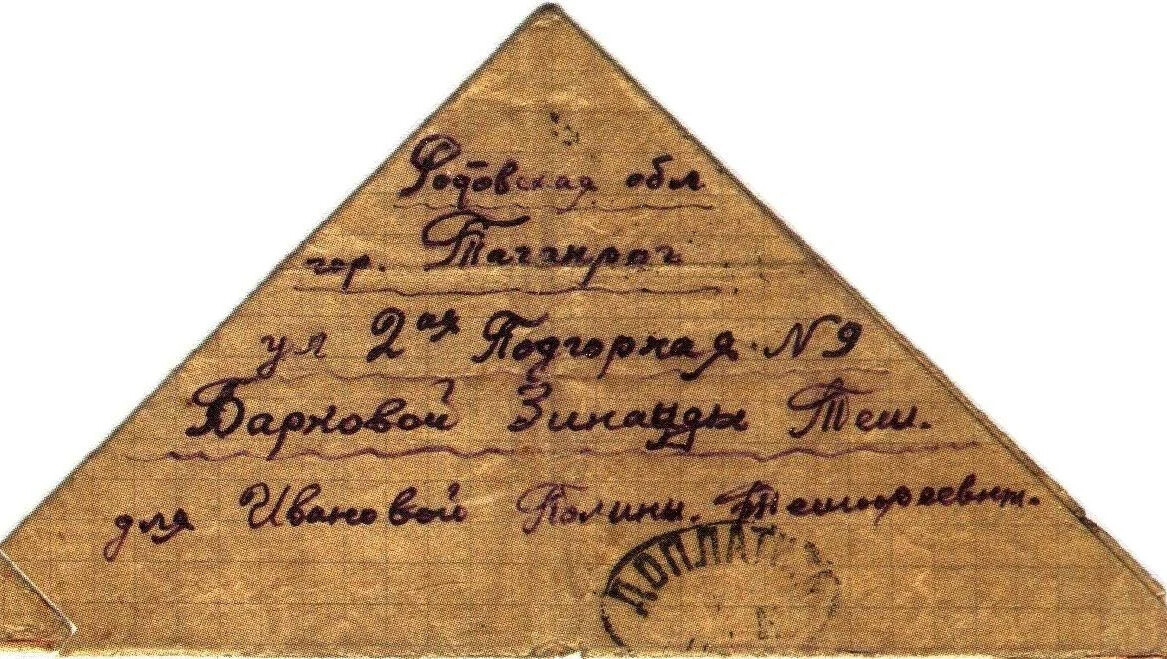 Ростовская обл
гор. Таганрог
ул 2ая Подгорная N 9
Барковой Зинаиды Тим.
для Ивановой Полины. Тимофеевны.
ДОПЛАТИТЬ